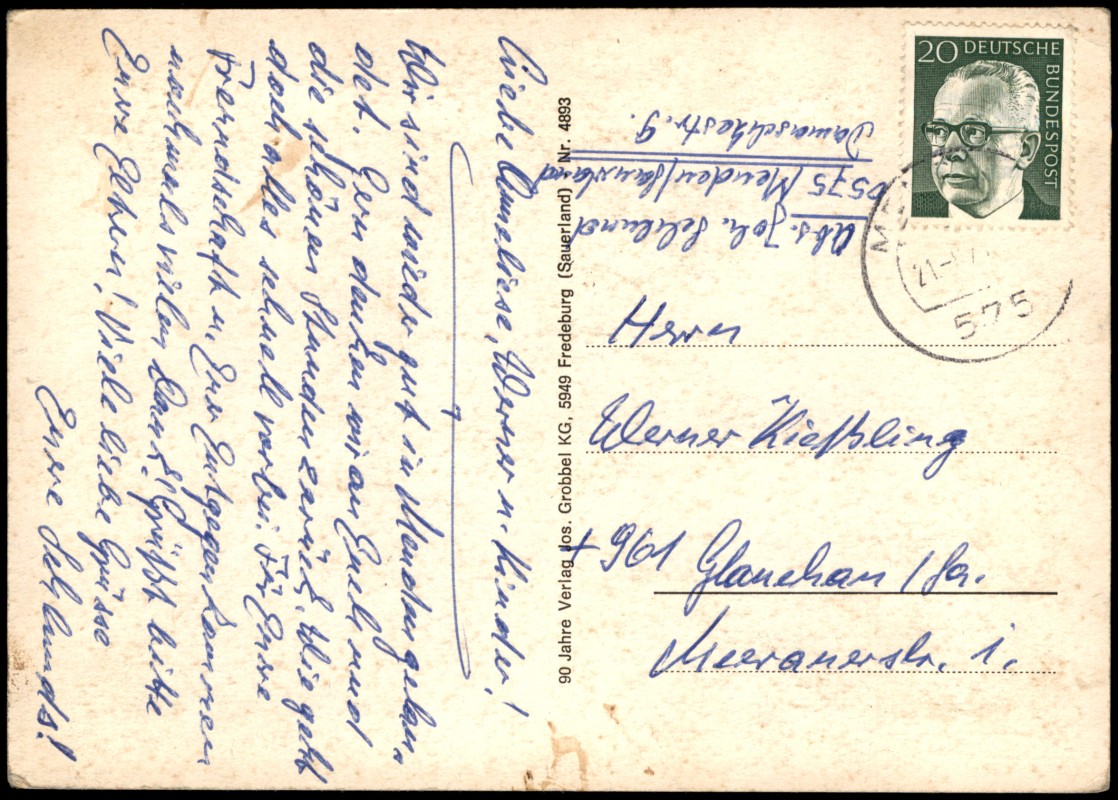 Liebe Anneliese, Werner u. Kinder!
Wir sind wieder gut in Menden gelan-
det. Gern denken wir an Euch und
die schönen Stunden zurück. Wie geht
doch alles schnell vorbei. Für Eure
Freundschaft u. Euer Entgegenkommen
nochmals vielen Dank. Grüßt bitte
Eure Eltern! Viele liebe Grüsse
Eure Schlunds!
90 Jahre Verlag Jos. Grobbel KG, 5949 Fredeburg (Sauerland) Nr. 4893
Abs. Joh. Schlund
575 Menden/Sauerland
Damaschkestr. 9.
20 DEUTSCHE
BUNDESPOST
21
575
Herrn
Werner Kießling
+ 961 Glauchau / Sa.
Meeranerstr. 1.